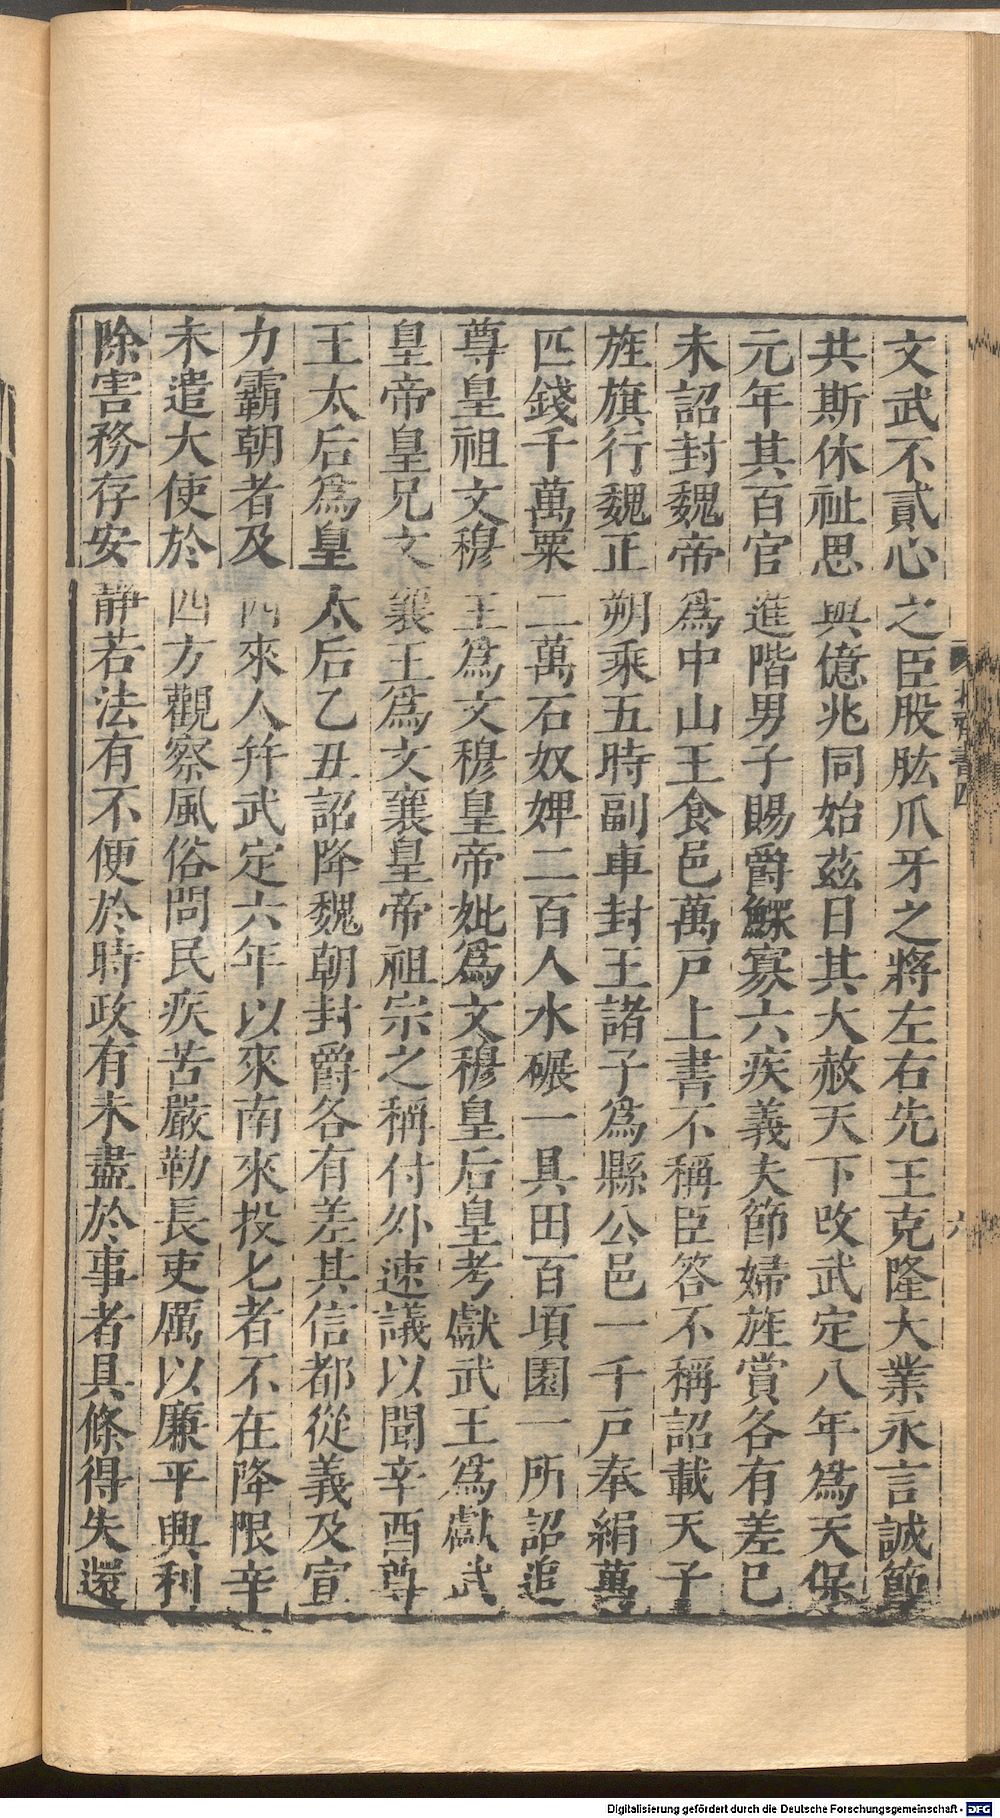 文武不貳心之臣股肱爪牙之將左右先王克隆大業永言誠節
共斯休祉思與億兆同始茲日其大赦天下改武定八年爲天保
元年其百官進階男子賜爵鰥寡六疾義夫節婦旌賞各有差巳
未詔封魏帝爲中山王食邑萬戸上書不稱臣答不稱詔載天子
旌旗行魏正朔乘五時副車封王諸子爲縣公邑一千戸奉絹萬
匹錢千萬粟二萬石奴婢二百人水碾一具田百頃園一所詔追
尊皇祖文穆王爲文穆皇帝妣爲文穆皇后皇考獻武王爲獻武
皇帝皇兄文襄王爲文襄皇帝祖宗之稱付外速議以聞辛酉尊
王太后爲皇太后乙丑詔降魏朝封爵各有差其信都從義及宣
力霸朝者及西來人并武定六年以來南來投化者不在降限辛
未遣大使於四方觀察風俗問民疾苦嚴勒長吏厲以廉平興利
除害務存安靜若法有不便於時政有未盡於事者具條得失還
北齊書四
六
Digitalisierung gefördert durch die Deutsche Forschungsgemeinschaft - DFG